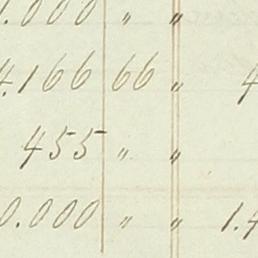 1.000 " "
4.166 66 " 4
455 " "
0.000 " " 1.4